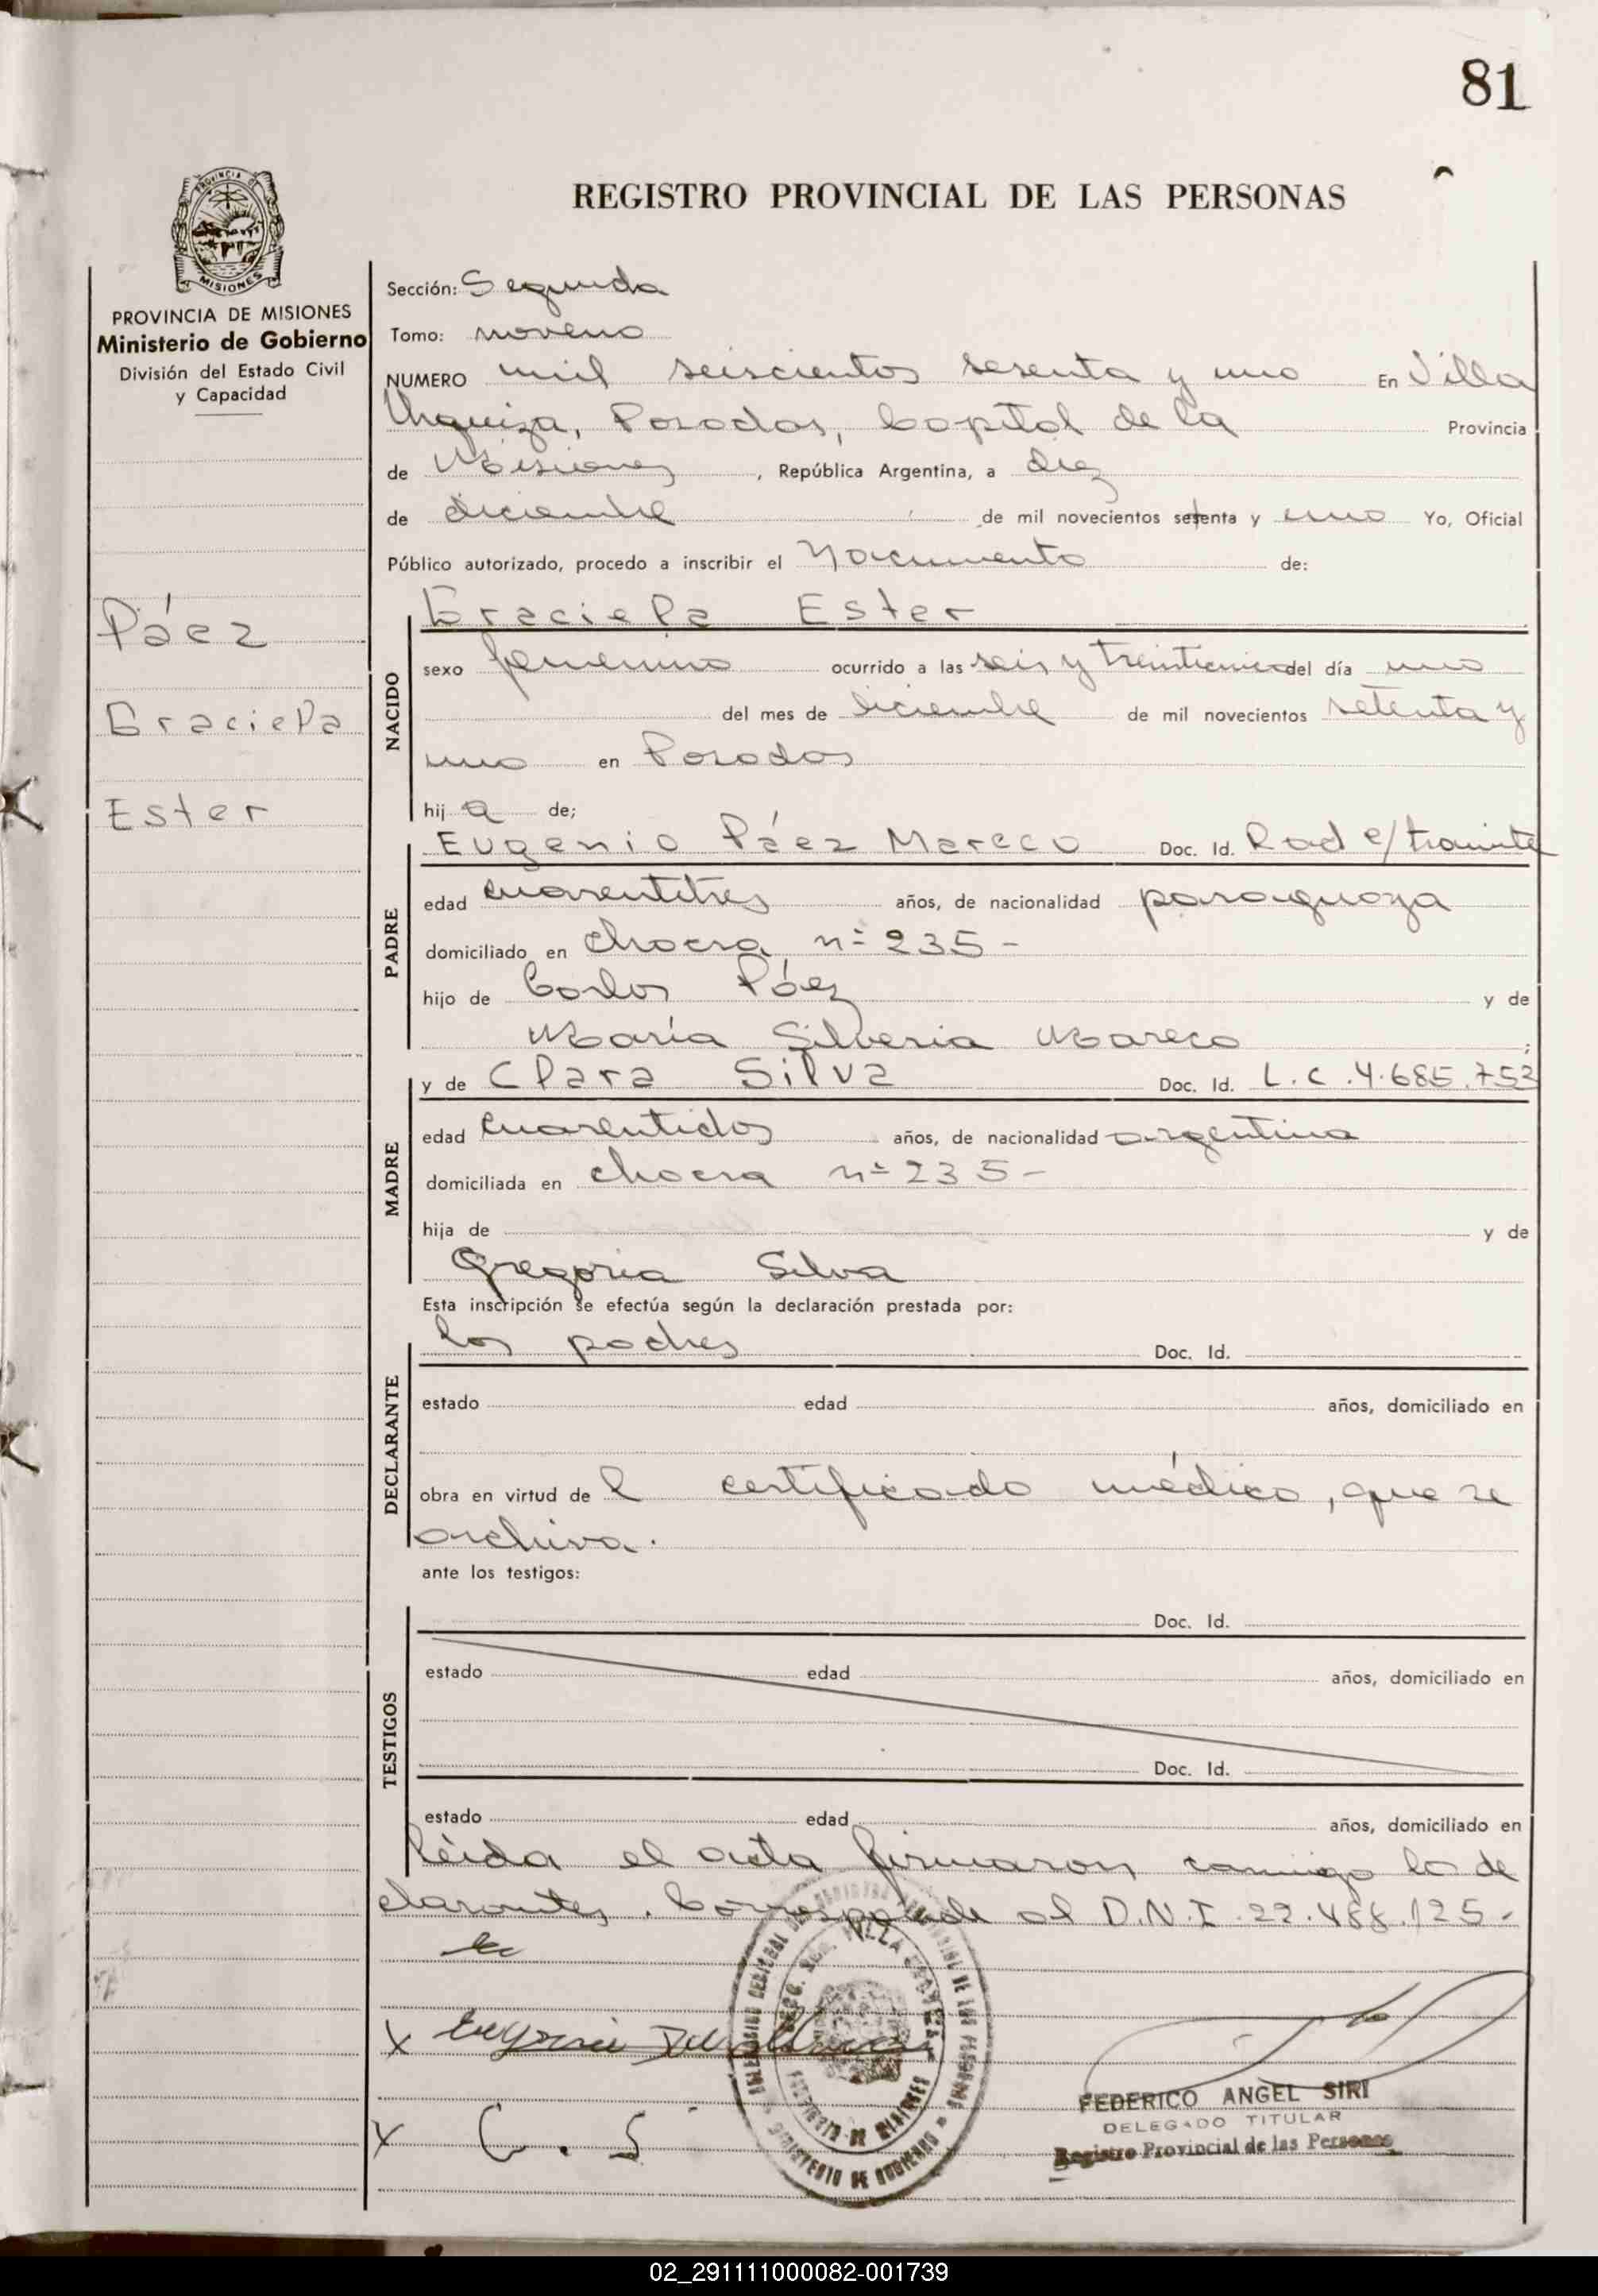 81
REGISTRO PROVINCIAL DE LAS PERSONAS
PROVINCIA DE MISIONES
Ministerio de Gobierno
División del Estado Civil
y Capacidad
Páez
Graciela
Ester
Sección: Segunda
Tomo: noveno
NUMERO mil seiscientos sesenta y uno En Villa
Urquiza, Posadas, Capital de la Provincia
de Misiones, República Argentina, a diez
de diciembre de mil novecientos setenta y uno Yo, Oficial
Público autorizado, procedo a inscribir el Nacimiento de:
NACIDO
Graciela Ester
sexo femenino ocurrido a las seis y treinticinco del día uno
del mes de diciembre de mil novecientos setenta y
uno en Posadas
hija de;
PADRE
Eugenio Páez Mareco Doc. Id. Rad e/tramite
edad cuarentitres años, de nacionalidad paraguaya
domiciliado en chacra nº 235 -
hijo de Carlos Páez y de
María Silveria Mareco ;
MADRE
y de Clara Silva Doc. Id. L.C. 4.685.753
edad cuarentidos años, de nacionalidad argentina
domiciliada en chacra nº 235 -
hija de y de
Gregoria Silva
Esta inscripción se efectúa según la declaración prestada por:
DECLARANTE
los padres Doc. Id.
estado edad años, domiciliado en
obra en virtud del certificado médico, que se
archiva.
ante los testigos:
TESTIGOS
Doc. Id.
estado edad años, domiciliado en
Doc. Id.
estado edad años, domiciliado en
leída el acta firmaron conmigo lo de
clarantes. Corresponde al D.N.I. 22.488.125-
X Eugenio
X C. S
FEDERICO ANGEL SIRI
DELEGADO TITULAR
Registro Provincial de las Personas
02_291111000082-001739